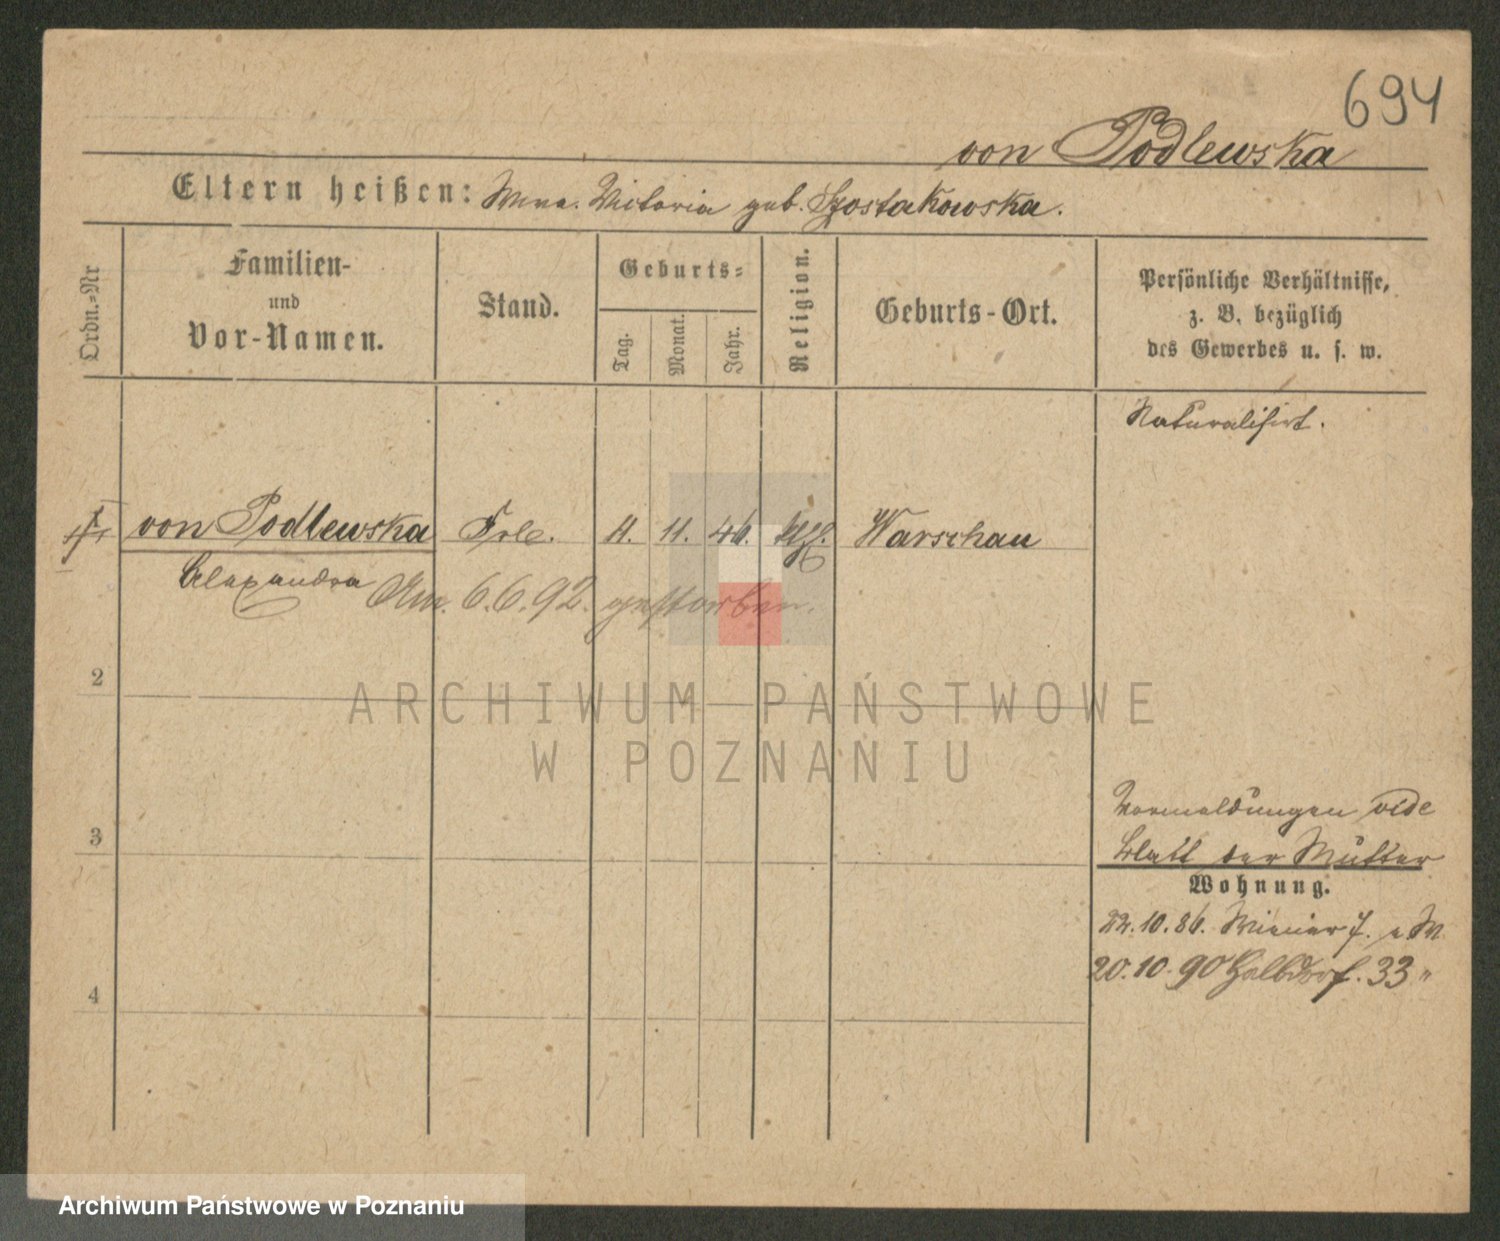 694
von Podlewska
Eltern heißen: Wwe. Victoria geb. Szostakowska.
Ordn.=Nr
Familien-
und
Vor-Namen.
Stand.
Geburts=
Tag.
Monat.
Jahr.
Religion.
Geburts-Ort.
Persönliche Verhältnisse,
z. B. bezüglich
des Gewerbes u. s. w.
Naturalisirt.
von Podlewska Frl. 11. 46. kath. Warschau
Alexandra Am. 6.6.92. gestorben.
2
ARCHIWUM PAŃSTWOWE
W POZNANIU
3
Vormeldungen vide
Blatt der Mutter
Wohnung.
22.10.86. Wiener 7.
20.10.90 Halbdorf. 33 "
4
Archiwum Państwowe w Poznaniu